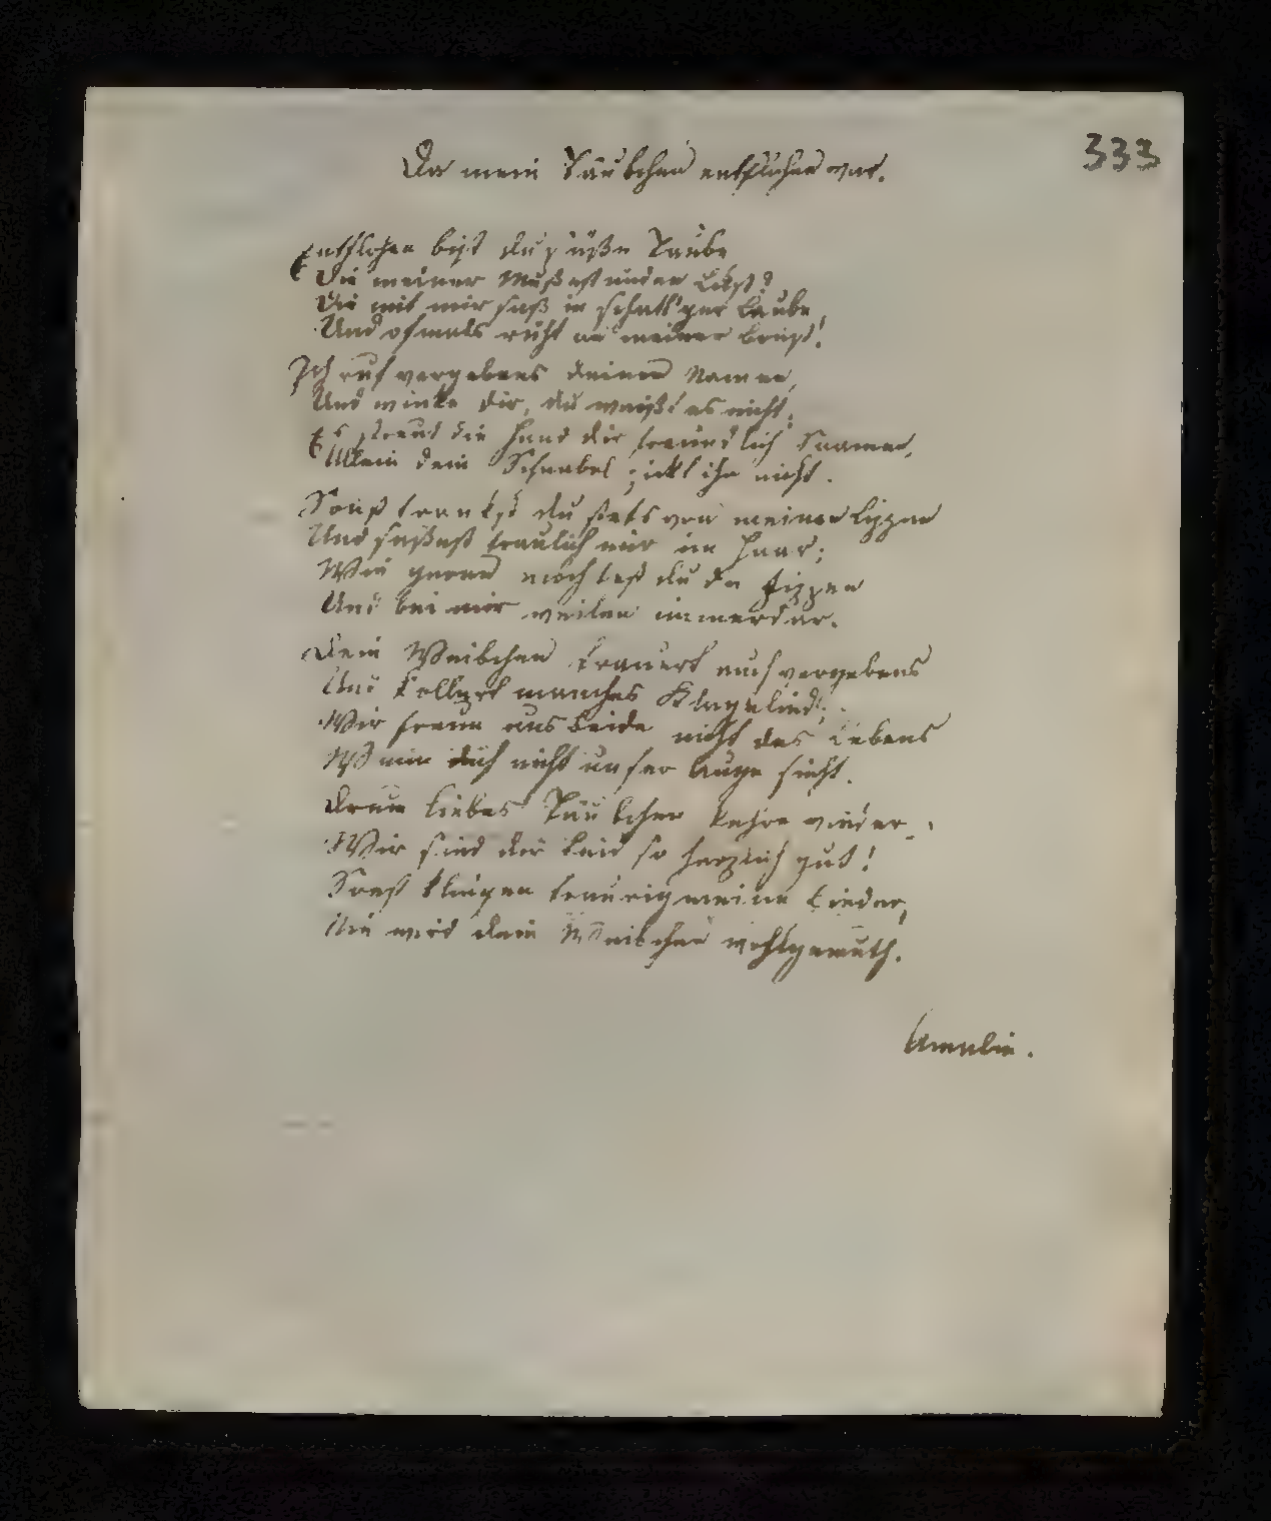 333
Da mein Täubchen entflohen war.
Entflohen bist du süße Taube
Die meiner Mußestunden Lust?
Die mit mir saß in schatt'ger Laube,
Und oftmals ruht an meiner Brust!
Ich ruf vergebens deinen Namen,
Und winke dir, du weißt es nicht,
Es streut die Hand dir freundlich Saamen,
Allein dein Schnabel pickt ihn nicht.
Sonst trankst du stets von meinen Lippen
Und saßest traulich mir im Haar;
Wie gerne mochtest du da
Und bei mir weilen immerdar.
Dein Weibchen trauert auch vergebens
Und kollert manches Klagelied;
Wir freun uns beide nicht des Lebens
Wenn dich nicht unser Auge sieht.
Drum liebes Täubchen kehre wieder,
Wir sind dir beid so herzlich gut!
Sonst klingen traurig meine Lieder,
Nie wird dein Weibchen wohlgemuth.
Amalie.